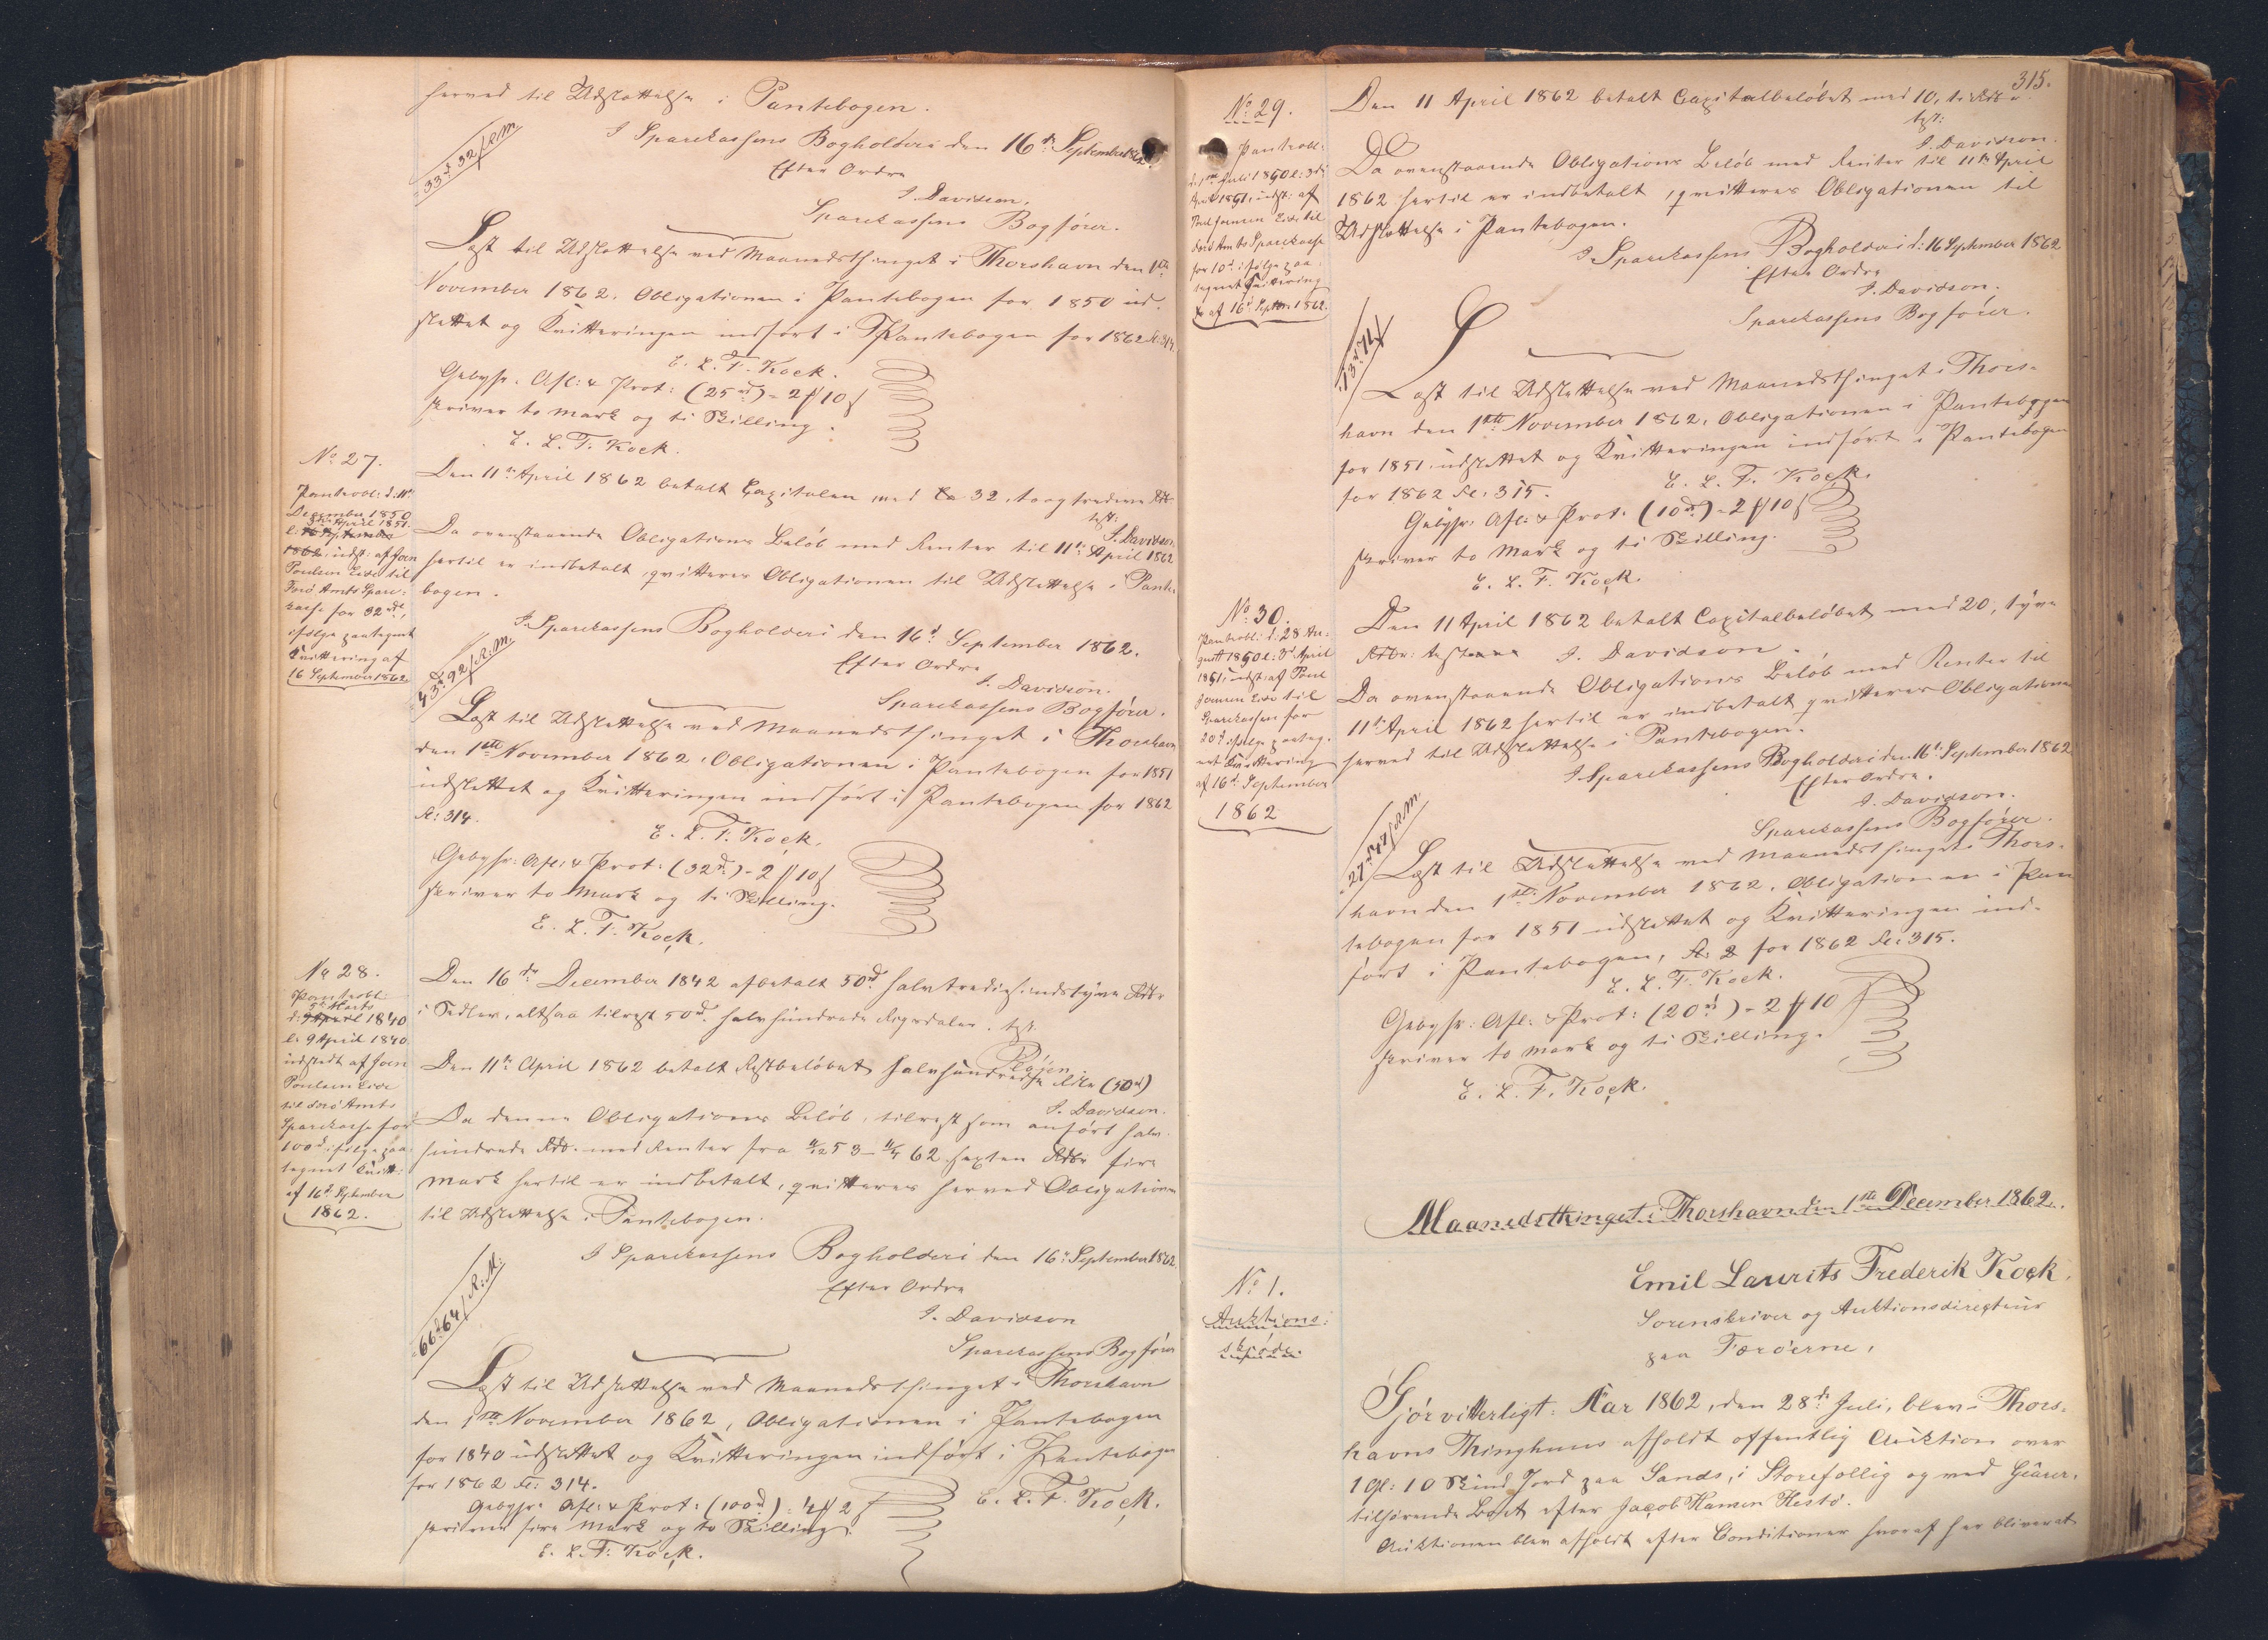 herved til Udslettelse i Pantebogen.
33rd 32/ R.M.
I Sparekassens Bogholderi den 16de September 1862
Efter Ordre
J. Davidson.
Sparekassens Bogfører.
Læst til Udslettelse ved Maanedsthinget i Thorshavn den 1ste
November 1862. Obligationen i Pantebogen for 1850 ud-
slettet og Kvitteringen indført i Pantebogen for 1862 fl: 314.
E. L. F. Kock.
Gebyhr. Afl: & Prot: (25rd) = 2 # 10 ß
skriver to Mark og ti Skilling.
E. L. F. Kock.
No 27.
Panteobl: d: 11te
December 1850
3die April 1851.
l: 16 September
1862, udst: af Joen
Poulsen Eide til
Færø Amts Spare-
kasse for 32rd,
ifølge paategnet
Kvittering af
16 September 1862
Den 11te April 1862 betalt Capitalen med 32, to og tredive Rd
tst:
J. Davidson
Da ovenstaaende Obligations Beløb med Renter til 11te April 1862
hertil er indbetalt, qvitteres Obligationen til Udslettelse i Pante-
bogen.
I Sparekassens Bogholderi den 16de September 1862.
43rd 92/ R.M.
Efter Ordre
J. Davidson.
Sparekassens Bogfører.
Læst til Udslettelse ved Maanedsthinget i Thorshavn
den 1ste November 1862. Obligationen i Pantebogen for 1851
udslettet og Kvitteringen indført i Pantebogen for 1862
fl: 314.
E. L. F. Kock.
Gebyhr: Afl: & Prot: (32rd) = 2 # 10 ß
skriver to Mark og ti Skilling.
E. L. F. Kock.
No 28.
Panteobl:
5te Marts
d: 9 April 1840
l: 9 April 1840
udstedt af Joen
Poulsen Eide
til Færø Amts
Sparekasse for
100rd ifølge paa-
tegnet Kvitt:
af 16de September
1862.
Den 16de December 1842 afbetalt 50rd halvtredsindstyve Rdlr
i Sedler, altsaa tilrest 50rd halvhundrede Rigsdaler. tst:
Pløjen
Den 11te April 1862 betalt Restbeløbet halvhundrede Rdlr (50rd)
J. Davidson.
Da denne Obligations Beløb, tilrest som anført halv-
hundrede Rdr. med Renter fra 11/12 53 – 11/4 62 sexten Rdlr fire
Mark hertil er indbetalt, qvitteres herved Obligationen
til Udslettelse i Pantebogen.
I Sparekassens Bogholderi den 16de September 1862.
66rd 64/ R.M.
Efter Ordre
J. Davidson
Sparekassens Bogfører
Læst til Udslettelse ved Maanedsthinget i Thorshavn
den 1ste November 1862, Obligationen i Pantebogen
for 1840 udslettet og Kvitteringen indført i Pantebogen
for 1862 fl: 314.
E. L. F. Kock.
Gebyhr: Afl: & Prot: (100rd) = 4 # 2 ß
skriver fire Mark og to Skilling.
E. L. F. Kock.
315.
No 29.
Panteobl:
d: 1ste Juli 1850 l: 3die
April 1851, udst: af
Poul Joensen Eide til
Færø Amts Sparekasse
for 10rd ifølge paa-
tegnet Qvittering
af 16de Septbr 1862.
Den 11 April 1862 betalt Capitalbeløbet med 10, ti Rdlr
tst:
J. Davidson.
Da ovenstaaende Obligations Beløb med Renter til 11te April
1862 hertil er indbetalt, qvitteres Obligationen til
Udslettelse i Pantebogen.
I Sparekassens Bogholderi d: 16 September 1862
Efter Ordre
J. Davidson.
Sparekassens Bogfører.
Læst til Udslettelse ved Maanedsthinget i Thors-
havn den 1ste November 1862. Obligationen i Pantebogen
for 1851 udslettet og Kvitteringen indført i Pantebogen
for 1862 fl: 315.
E. L. F. Kock.
Gebyhr. Afl: & Prot. (10rd) = 2 # 10 ß
skriver to Mark og ti Skilling.
E. L. F. Kock.
No 30.
Panteobl: d: 28 Au-
gust 1850 l: 3die April
1851, udst: af Poul
Joensen Eide til
Sparekassen for
20rd ifølge paateg-
net Qvittering
af 16de September
1862
Den 11 April 1862 betalt Capitalbeløbet med 20, tyve
Rdlr: J. Davidson.
Da ovenstaaende Obligations Beløb med Renter til
11te April 1862 hertil er indbetalt qvitteres Obligationen
herved til Udslettelse i Pantebogen.
I Sparekassens Bogholderi den 16de September 1862
Efter Ordre.
J. Davidson.
Sparekassens Bogfører.
Læst til Udslettelse ved Maanedsthinget i Thors-
havn den 1ste November 1862. Obligationen i Pan-
tebogen for 1851 udslettet og Kvitteringen ind-
ført i Pantebogen, for 1862 fl: 315.
E. L. F. Kock.
Gebyhr: Afl: & Prot: (20rd) = 2 # 10 ß
skriver to Mark og ti Skilling.
E. L. F. Kock.
Maanedsthinget i Thorshavn den 1ste December 1862.
No 1.
Auktions-
skjøde.
Emil Laurits Frederik Kock,
Sorenskriver og Auktionsdirecteur
paa Færøerne,
Gjør vitterligt: Aar 1862, den 28de Juli, blev i Thors-
havns Thinghuus afholdt offentlig Auktion over
1 Gl: 10 Skind Jord paa Sands, i Storefollig og ved Giærer,
tilhørende Boet efter Jacob Hansen Hestø.
Auktionen blev afholdt efter Conditioner hvoraf her bliver at